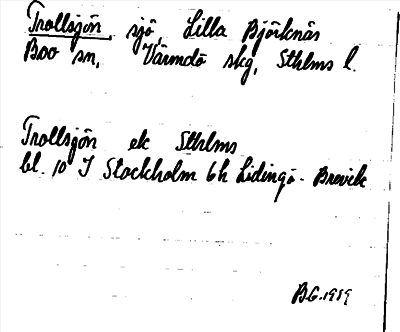 Trollsjön, sjö, Lilla Björknäs
Boo sn, Värmdö skg, Sthlms l.
Trollsjön ek Sthlms
bl. 10 I Stockholm 6h Lidingö - Brevik
B.G. 1989